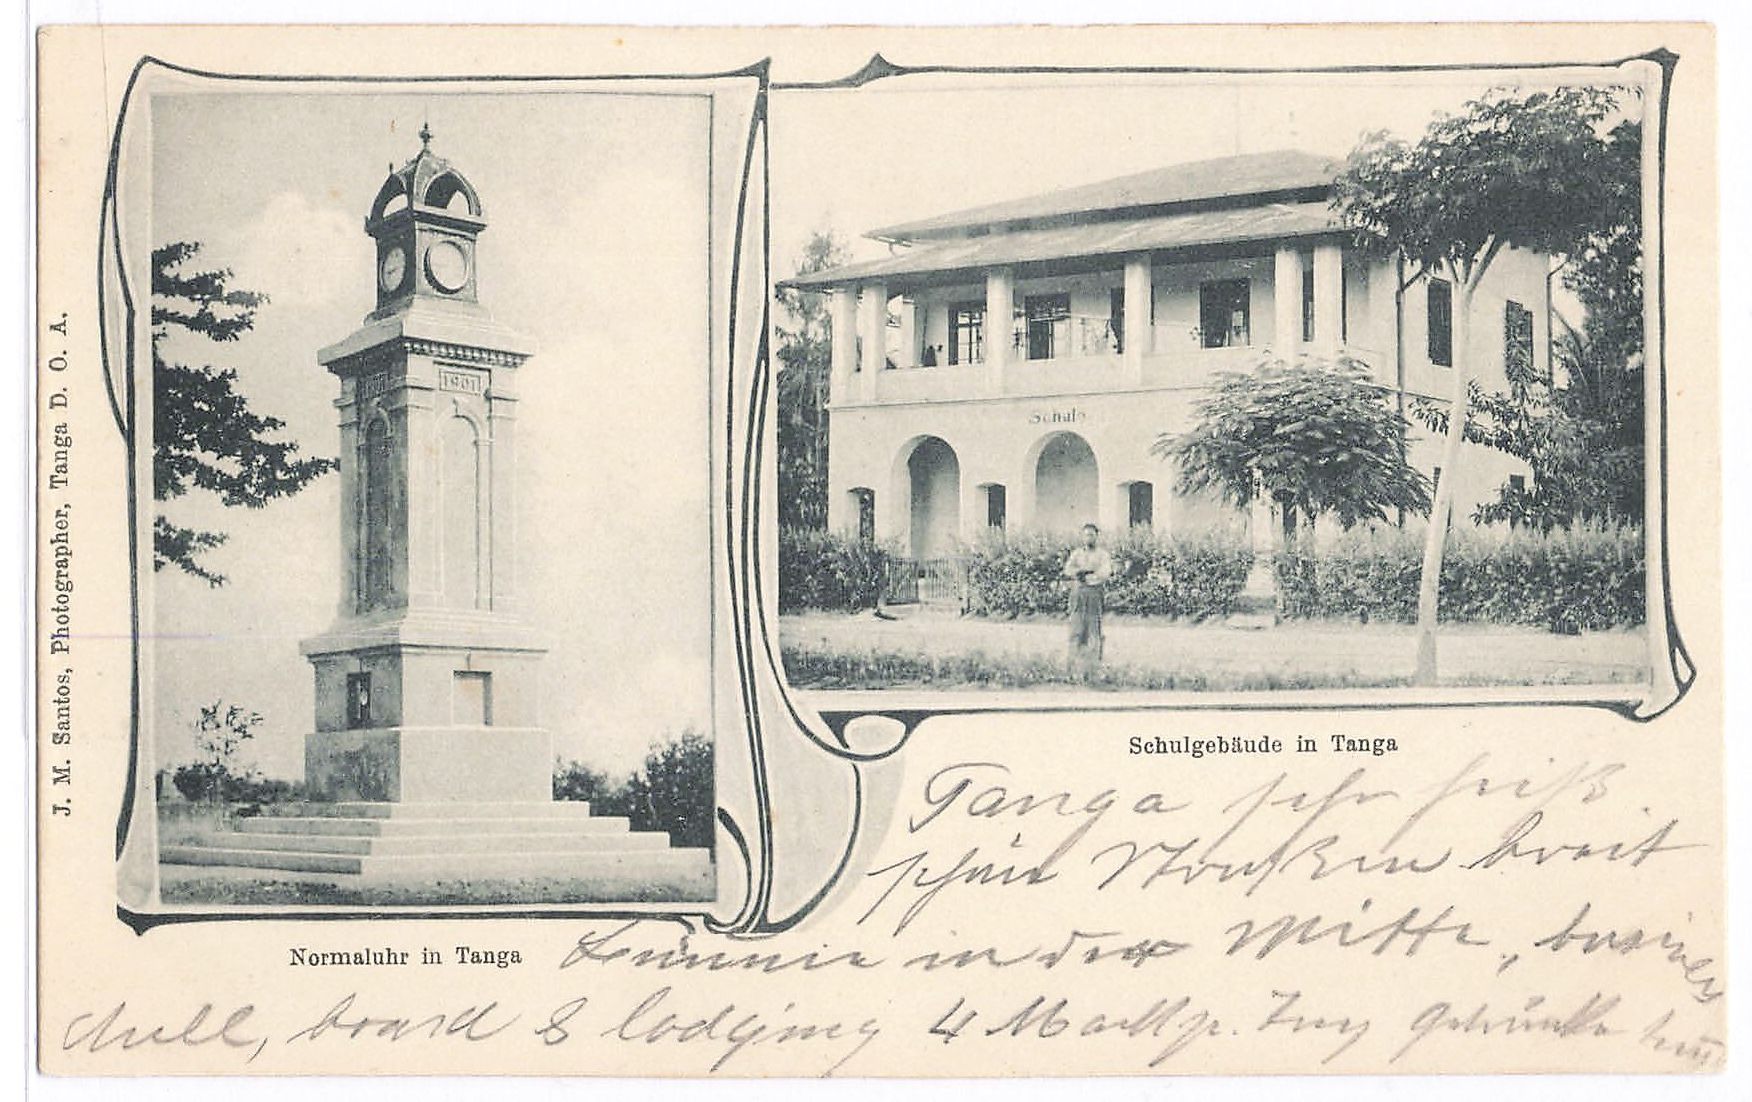 J. M. Santos, Photographer, Tanga D. O. A.
1901
Schule
Schulgebäude in Tanga
Normaluhr in Tanga
Tanga sehr heiß.
schön Straßen breit
Bäume in der Mitte, business
dull, board & lodging 4 Mark p. Tag Getränke